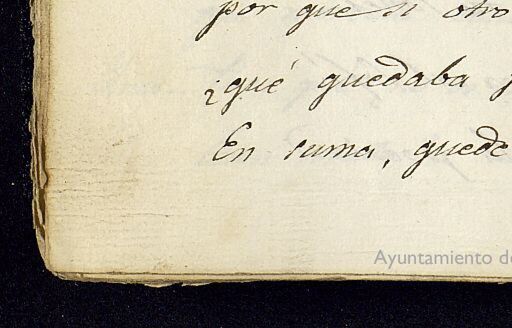 por que si otro
¿qué quedaba
En suma, quede
Ayuntamiento de